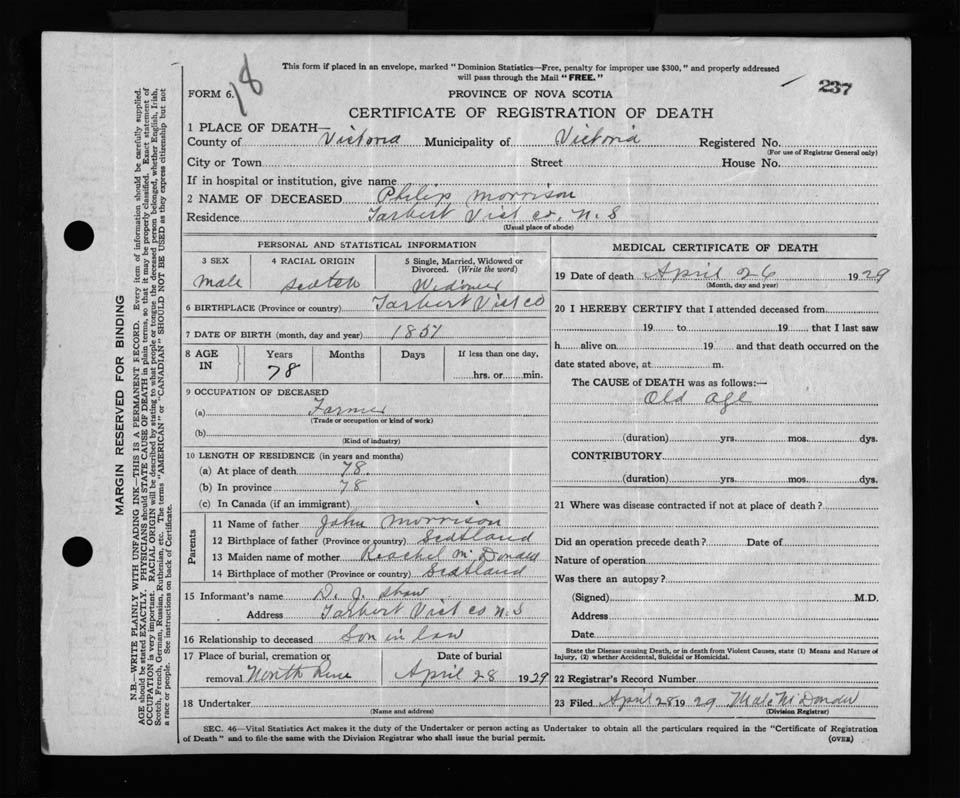 This form if placed in an envelope, marked "Dominion Statistics—Free, penalty for improper use $300," and properly addressed
will pass through the Mail "FREE."
18
237
FORM 6.
PROVINCE OF NOVA SCOTIA
CERTIFICATE OF REGISTRATION OF DEATH
1 PLACE OF DEATH—
County of Victoria Municipality of Victoria Registered No.
(For use of Registrar General only)
City or Town Street House No.
If in hospital or institution, give name
2 NAME OF DECEASED Philip Morrison
Residence Tarbert Vict co. N. S
(Usual place of abode)
PERSONAL AND STATISTICAL INFORMATION
3 SEX 4 RACIAL ORIGIN 5 Single, Married, Widowed or Divorced. (Write the word)
male scotch Widower
6 BIRTHPLACE (Province or country) Tarbert Vict co
7 DATE OF BIRTH (month, day and year) 1851
8 AGE IN Years Months Days If less than one day,
78 hrs. or min.
9 OCCUPATION OF DECEASED
(a) Farmer
(Trade or occupation or kind of work)
(b)
(Kind of industry)
10 LENGTH OF RESIDENCE (in years and months)
(a) At place of death 78
(b) In province 78
(c) In Canada (if an immigrant)
Parents
11 Name of father John Morrison
12 Birthplace of father (Province or country) Scotland
13 Maiden name of mother Reachel McDonald
14 Birthplace of mother (Province or country) Scotland
15 Informant's name D. J. Shaw
Address Tarbert Vict co N. S
16 Relationship to deceased Son in law
17 Place of burial, cremation or Date of burial
removal North River April 28 1929
18 Undertaker
(Name and address)
MEDICAL CERTIFICATE OF DEATH
19 Date of death April 26 1929
(Month, day and year)
20 I HEREBY CERTIFY that I attended deceased from
19 to 19 that I last saw
h alive on 19 and that death occurred on the
date stated above, at m.
The CAUSE of DEATH was as follows:—
Old age
(duration) yrs. mos. dys.
CONTRIBUTORY
(duration) yrs. mos. dys.
21 Where was disease contracted if not at place of death?
Did an operation precede death? Date of
Nature of operation
Was there an autopsy?
(Signed) M.D.
Address
Date
State the Disease causing Death, or in death from Violent Causes, state (1) Means and Nature of
Injury, (2) whether Accidental, Suicidal or Homicidal.
22 Registrar's Record Number
23 Filed April 28 19 29
(Division Registrar)
SEC. 46—Vital Statistics Act makes it the duty of the Undertaker or person acting as Undertaker to obtain all the particulars required in the "Certificate of Registration
of Death" and to file the same with the Division Registrar who shall issue the burial permit. (OVER)
MARGIN RESERVED FOR BINDING
N.B.—WRITE PLAINLY WITH UNFADING INK—THIS IS A PERMANENT RECORD. Every item of information should be carefully supplied.
AGE should be stated EXACTLY. PHYSICIANS should STATE CAUSE OF DEATH in plain terms, so that it may be properly classified. Exact statement of
OCCUPATION is very important. RACIAL ORIGIN will be described by stating to what people or tongue the deceased person belonged, whether English, Irish,
Scotch, French, German, Russian, Ruthenian, etc. The terms "AMERICAN" or "CANADIAN" SHOULD NOT BE USED as they express citizenship but not
a race or people. See instructions on back of Certificate.